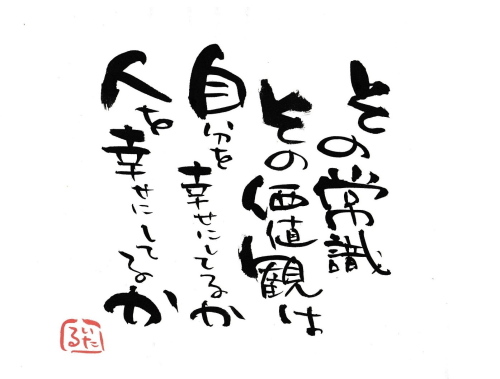 その常識
その価値観は
自分を幸せにしてるか
人を幸せにしてるか